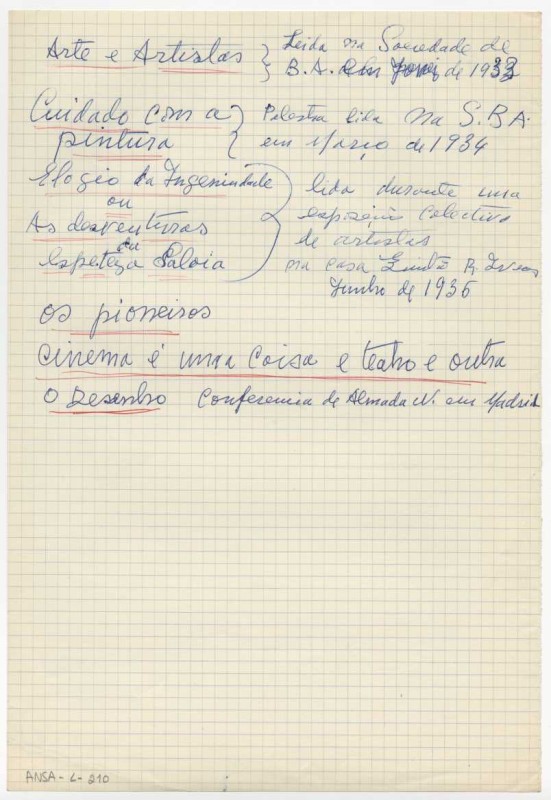 Arte e Artistas } Leida na Sociedade de
B.A. de 1933
Cuidado com a } Palestra lida na S.B.A.
pintura { em Março de 1934
Elogio da Ingenuidade
ou
As desventuras
da
esperteza Saloia
lida durante uma
exposição Colectiva
de artistas
na casa
Junho de 1936
os pioneiros
cinema é uma coisa e teatro e outra
O Desenho Conferencia de Almada N. em Madrid
ANSA-L-210